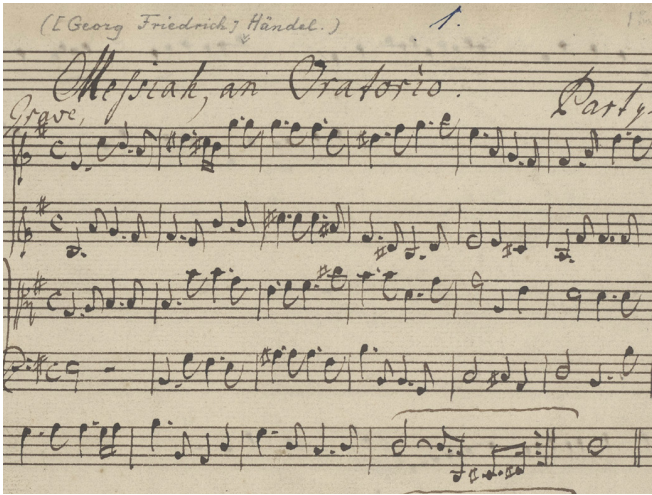 ([Georg Friedrich] Händel.)
1.
Messiah, an Oratorio.
Grave,